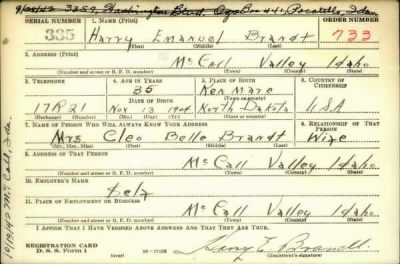 9/25/43 3257 Washington Blvd. Box 441, Pocatello, Ida
SERIAL NUMBER 1. NAME (Print) ORDER NUMBER
335 Harry Emanuel Brandt 733
(First) (Middle) (Last)
2. ADDRESS (Print)
McCall Valley Idaho
(Number and street or R. F. D. number) (Town) (County) (State)
3. TELEPHONE 4. AGE IN YEARS 5. PLACE OF BIRTH 6. COUNTRY OF CITIZENSHIP
35 Kenmare
DATE OF BIRTH (Town or county)
17R21 Nov 13 1904 North Dakota USA
(Exchange) (No.) (Mo.) (Day) (Yr.) (State or country)
7. NAME OF PERSON WHO WILL ALWAYS KNOW YOUR ADDRESS 8. RELATIONSHIP OF THAT PERSON
Mrs Cleo Belle Brandt Wife
(Mr., Mrs., Miss) (First) (Middle) (Last)
9. ADDRESS OF THAT PERSON
McCall Valley Idaho
(Number and street or R. F. D. number) (Town) (County) (State)
10. EMPLOYER'S NAME
Self
11. PLACE OF EMPLOYMENT OR BUSINESS
McCall Valley Idaho
(Number and street or R. F. D. number) (Town) (County) (State)
I AFFIRM THAT I HAVE VERIFIED ABOVE ANSWERS AND THAT THEY ARE TRUE.
REGISTRATION CARD
D. S. S. Form 1 (over) (Registrant's signature)
McCall, Ida.